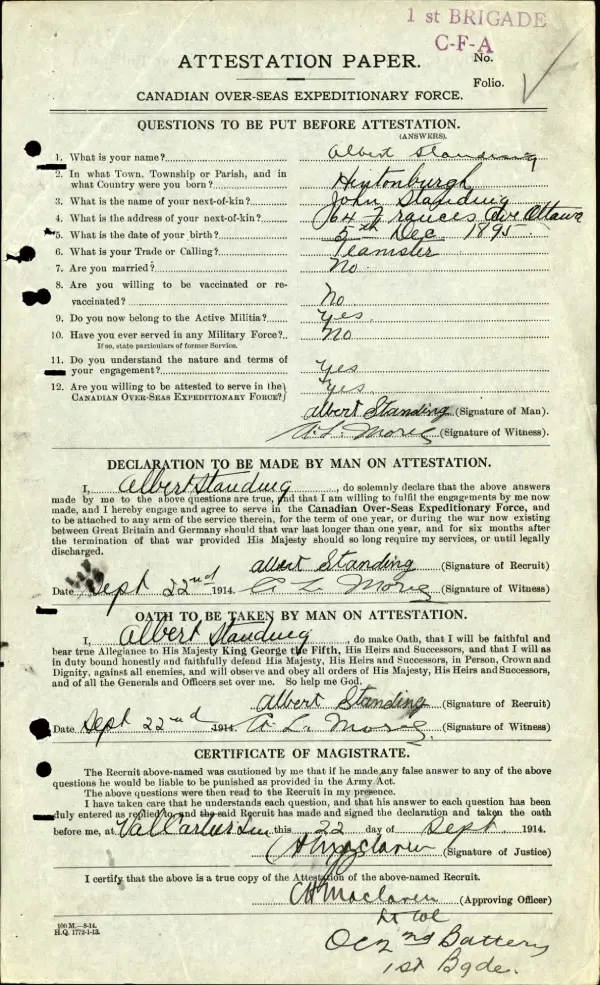 1 st BRIGADE
C-F-A
ATTESTATION PAPER.
No.
Folio.
CANADIAN OVER-SEAS EXPEDITIONARY FORCE.
QUESTIONS TO BE PUT BEFORE ATTESTATION.
(ANSWERS).
1. What is your name? Albert Standing
2. In what Town, Township or Parish, and in
what Country were you born? Hintonburgh
3. What is the name of your next-of-kin? John Standing
4. What is the address of your next-of-kin? 64 Frances Ave Ottawa
5. What is the date of your birth? 5th Dec 1895
6. What is your Trade or Calling? Teamster
7. Are you married? No.
8. Are you willing to be vaccinated or re-
vaccinated? No
9. Do you now belong to the Active Militia? Yes
10. Have you ever served in any Military Force? No
If so, state particulars of former Service.
11. Do you understand the nature and terms of
your engagement? Yes
12. Are you willing to be attested to serve in the
CANADIAN OVER-SEAS EXPEDITIONARY FORCE? Yes.
Albert Standing (Signature of Man).
A. L. (Signature of Witness).
DECLARATION TO BE MADE BY MAN ON ATTESTATION.
I, Albert Standing, do solemnly declare that the above answers
made by me to the above questions are true, and that I am willing to fulfil the engagements by me now
made, and I hereby engage and agree to serve in the Canadian Over-Seas Expeditionary Force, and
to be attached to any arm of the service therein, for the term of one year, or during the war now existing
between Great Britain and Germany should that war last longer than one year, and for six months after
the termination of that war provided His Majesty should so long require my services, or until legally
discharged.
Albert Standing (Signature of Recruit)
Date Sept 22nd 1914. A L (Signature of Witness)
OATH TO BE TAKEN BY MAN ON ATTESTATION.
I, Albert Standing, do make Oath, that I will be faithful and
bear true Allegiance to His Majesty King George the Fifth, His Heirs and Successors, and that I will as
in duty bound honestly and faithfully defend His Majesty, His Heirs and Successors, in Person, Crown and
Dignity, against all enemies, and will observe and obey all orders of His Majesty, His Heirs and Successors,
and of all the Generals and Officers set over me. So help me God.
Albert Standing (Signature of Recruit)
Date Sept 22nd 1914. A. L. (Signature of Witness)
CERTIFICATE OF MAGISTRATE.
The Recruit above-named was cautioned by me that if he made any false answer to any of the above
questions he would be liable to be punished as provided in the Army Act.
The above questions were then read to the Recruit in my presence.
I have taken care that he understands each question, and that his answer to each question has been
duly entered as replied to, and the said Recruit has made and signed the declaration and taken the oath
before me, at Valcartier this 22 day of Sept 1914.
CH Maclaren (Signature of Justice)
I certify that the above is a true copy of the Attestation of the above-named Recruit.
CH Maclaren (Approving Officer)
Lt Col
100 M.—8-14.
H.Q. 1772-1-13.
OC 2nd Battery
1st Bgde.